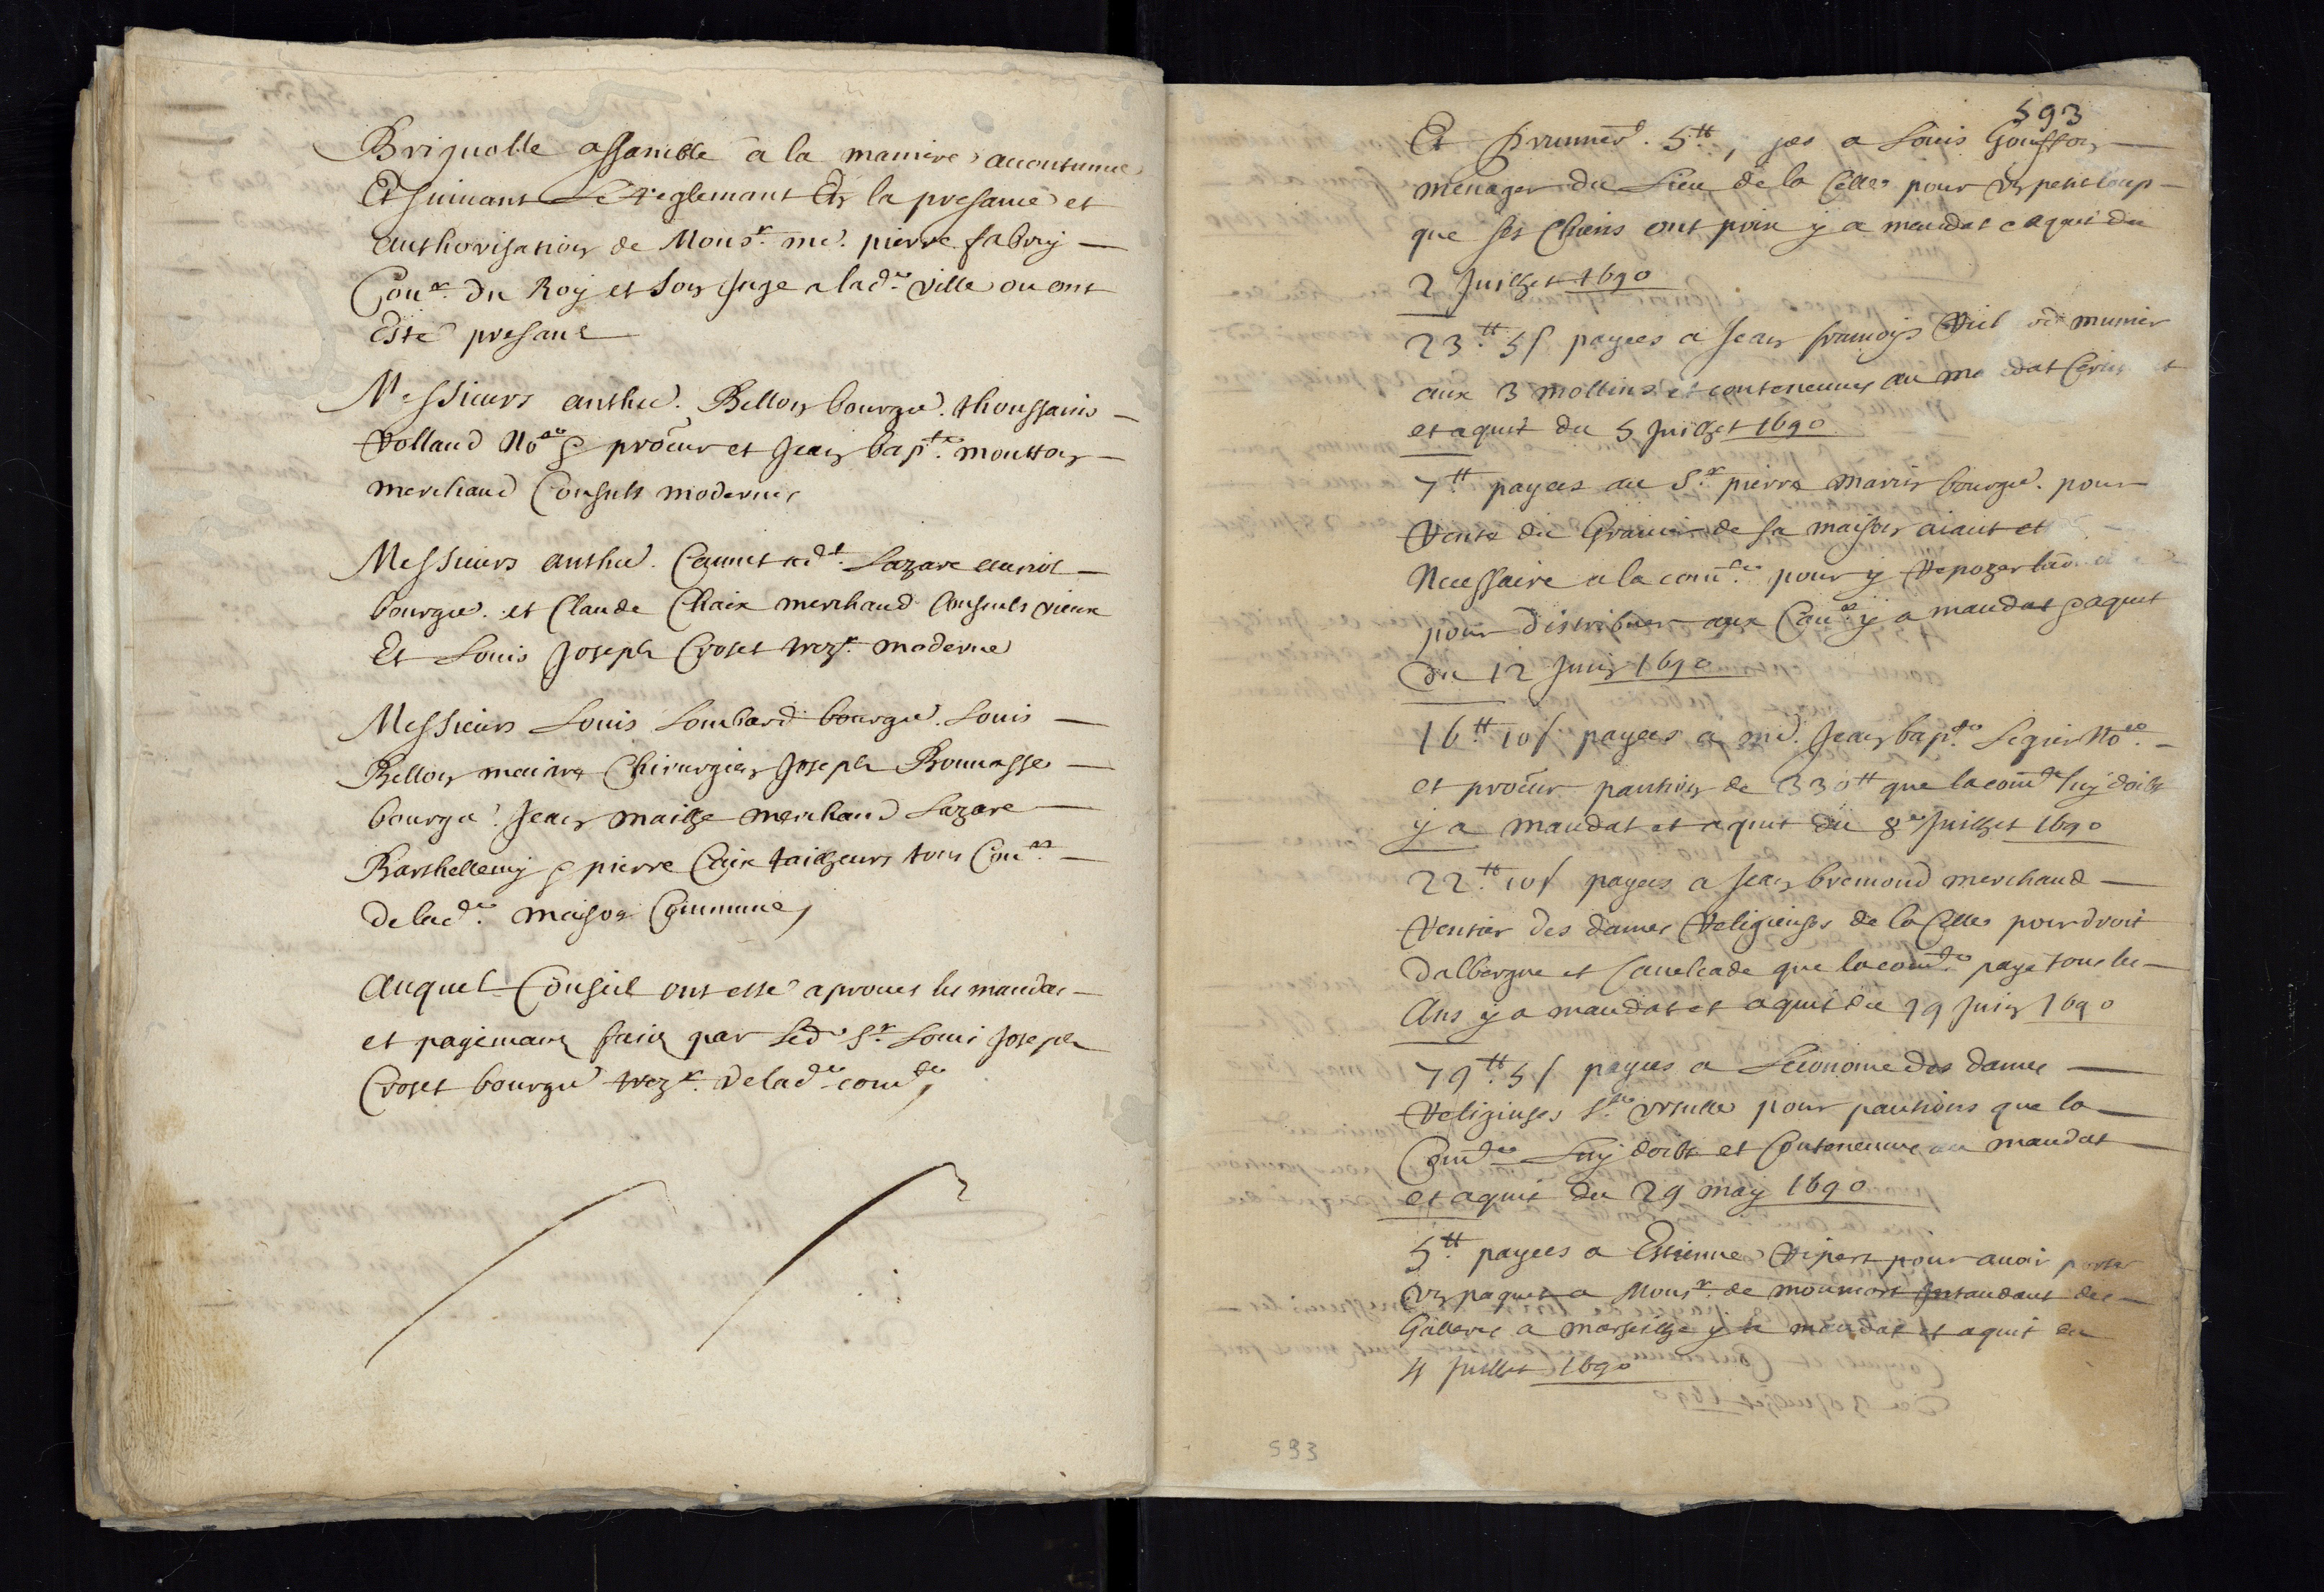 Brignolle assamblé a la maniere accoutumee
Et suivant Le reglemant En la presance et
authorisation de Monsr. me. pierre fabry
Conr. du Roy et son Juge a lade. ville ou ont
Esté presant
Messieurs anthe. Bellon bourge. thoussains
Volland Nore & procur et Jean bapte. moutton
merchand Consuls modernes
Messieurs anthe. Cannet Lazare
bourge. et Claude Chaix merchand Consuls vieux
Et Louis Joseph Croset trezr. moderne
Messieurs Louis Lombard bourge. Louis
Bellon maitre Chirurgien Joseph Bonnasse
bourge. Jean maille merchand Lazare
Barthellemy & pierre Caix tailleurs tous Conrs.
de lade. maison Commune,
Auquel Conseil ont esté aprouves les mandas
et payemans faix par Led. Sr. Louis Joseph
Croset bourge. trezr. de lade. comte,
593
Et 5tt, a Louis Gouffon
menager du Lieu de la Celle pour un petit loup
que ses Chiens ont prix y a mandat & aquit du
2 Juillet 1690
23tt. 5s payees a Jean francoys Viel munier
aux 3 mollins et contenennes au
et aquit du 5 Juillet 1690
7tt. payees au Sr. pierre marin bourge. pour
Rente du Granier de sa maison aiant
Necessaire a la comte. pour y Repozer
pour distribuer aux Conrs y a mandat & aquit
du 12 Juin 1690
16tt. 10s payees a me. Jean bapte. Legier Nore.
et procur pantion de 330tt que la comte luy doibt
y a mandat et aquit du 8e Juillet 1690
22tt. 10s payees a Jean bremond merchand
Rentier des dames Religieuses de la Celle pour droit
dalbergue et Cavalcade que la comte paye tous les
Ans y a mandat et aquit du 19 Juin 1690
79tt. 5s payees a Leconome des dames
Religieuses Ste ursulle pour pantions que la
Comte Luy doibt et Contenenne au mandat
et aquit du 29 may 1690
5tt. payees a Estienne Ripert pour avoir porter
Un paquet a Monsr. de monmort Intandant des
Galleres a marseille y a mandat et aquit du
4 Juillet 1690
593